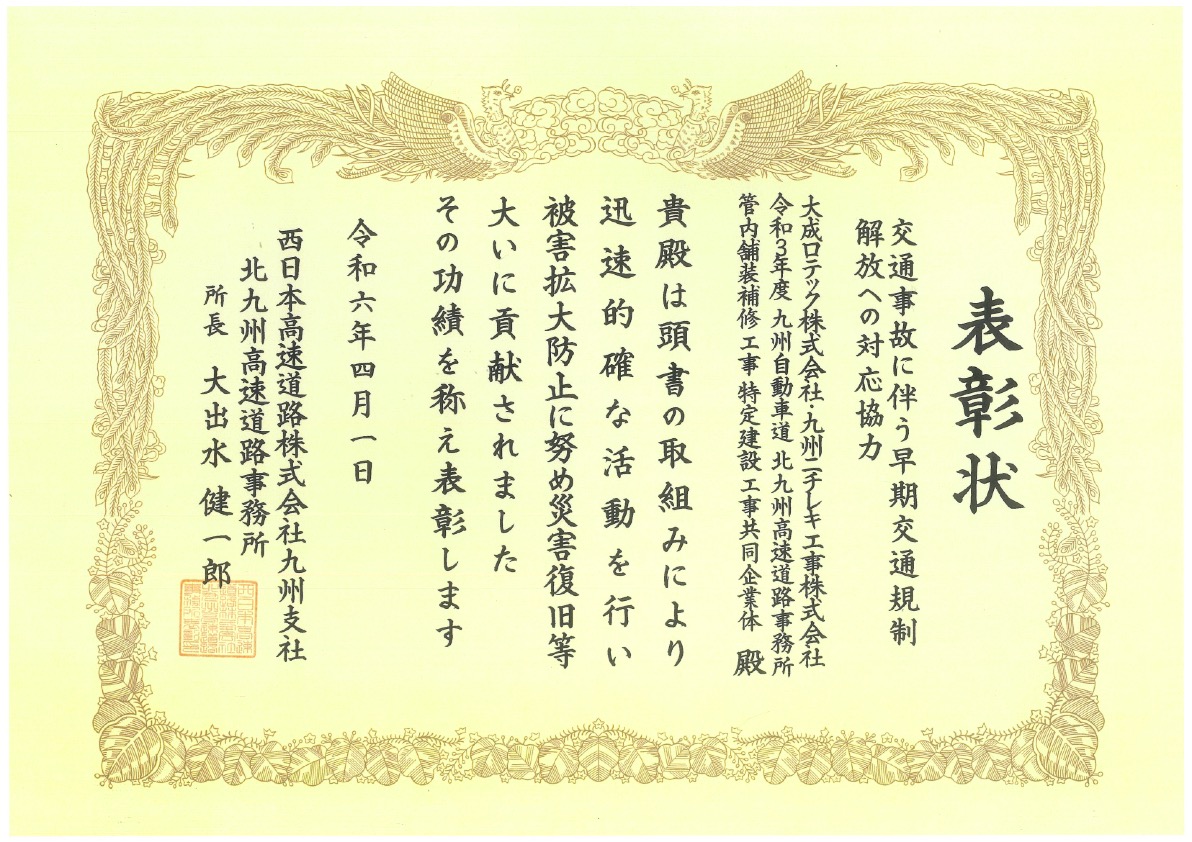 表彰状
交通事故に伴う早期交通規制
解放への対応協力
大成ロテック株式会社・九州ニチレキ工事株式会社
令和3年度 九州自動車道 北九州高速道路事務所
管内舗装補修工事 特定建設工事共同企業体 殿
貴殿は頭書の取組みにより
迅速的確な活動を行い
被害拡大防止に努め災害復旧等
大いに貢献されました
その功績を称え表彰します
令和六年四月一日
西日本高速道路株式会社九州支社
北九州高速道路事務所
所長 大出水 健一郎